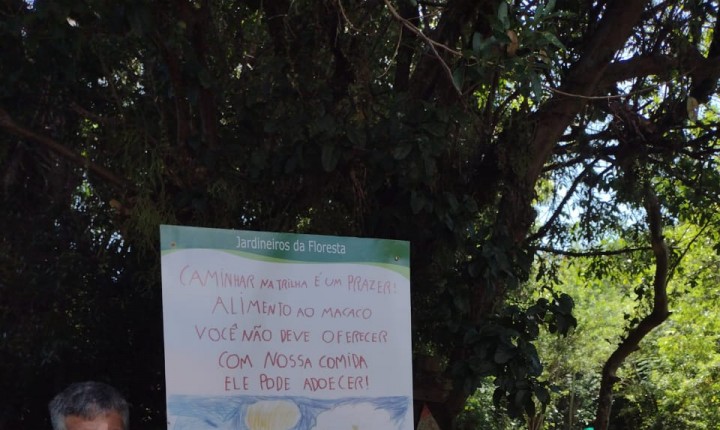 Jardineiros da Floresta
CAMINHAR NA TRILHA É UM PRAZER!
ALIMENTO AO MACACO
VOCÊ NÃO DEVE OFERECER
COM NOSSA COMIDA
ELE PODE ADOECER!